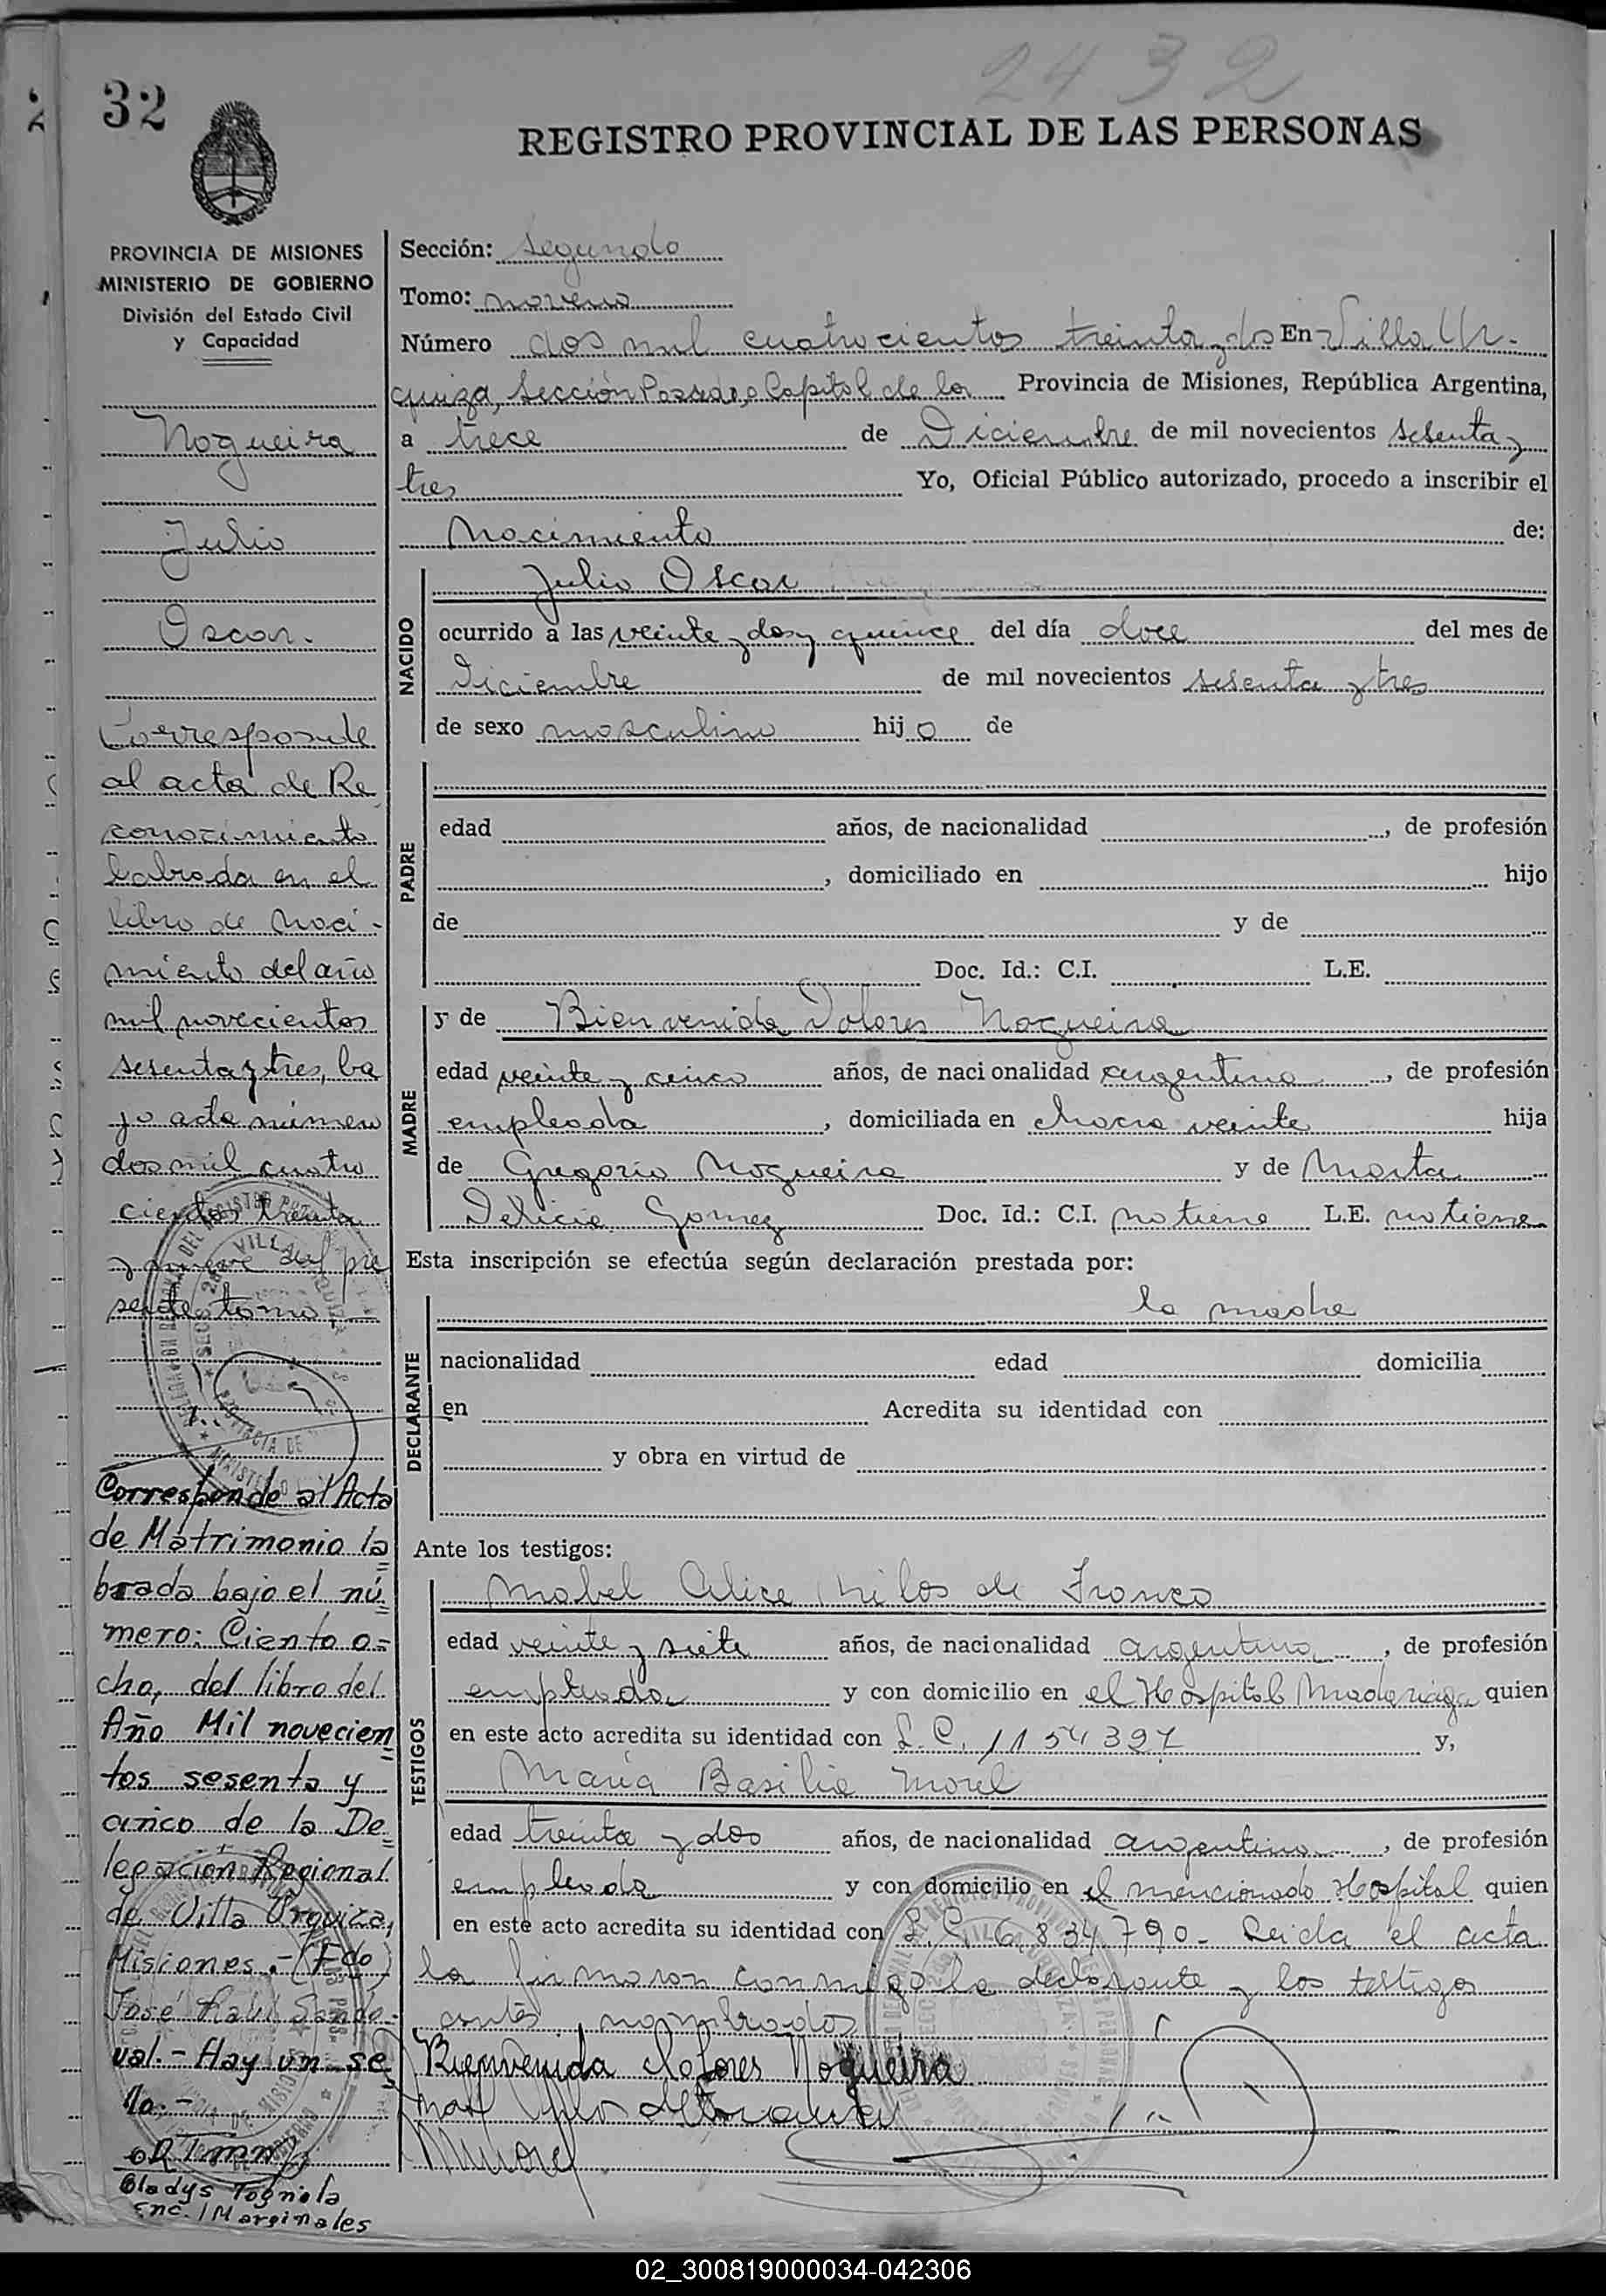 2432
32
REGISTRO PROVINCIAL DE LAS PERSONAS
PROVINCIA DE MISIONES
MINISTERIO DE GOBIERNO
División del Estado Civil
y Capacidad
Nogueira
Julio
Oscar.
Corresponde
al acta de Re
conocimiento
labrada en el
libro de Naci-
miento del año
mil novecientos
sesenta y tres, ba
jo acta número
dos mil cuatro
cientos treinta
y nueve del pre
sente tomo.-
Corresponde al Acta
de Matrimonio la=
brada bajo el nú=
mero: Ciento o=
cho, del libro del
Año Mil novecien=
tos sesenta y
cinco de la De=
legación Regional
de Villa Urquiza,
Misiones.- (Fdo)
José Raúl Sando-
val.- Hay un se=
llo.-
Gladys Togniola
Enc. / Marginales
Sección: Segundo
Tomo: noveno
Número dos mil cuatrocientos treinta y dos En Villa Ur-
quiza, Sección Posadas Capital de la Provincia de Misiones, República Argentina,
a trece de Diciembre de mil novecientos sesenta y
tres Yo, Oficial Público autorizado, procedo a inscribir el
Nacimiento de:
NACIDO
Julio Oscar
ocurrido a las veinte y dos y quince del día doce del mes de
Diciembre de mil novecientos sesenta y tres
de sexo masculino hij o de
PADRE
edad años, de nacionalidad , de profesión
, domiciliado en hijo
de y de
Doc. Id.: C.I. L.E.
MADRE
y de Bienvenida Dolores Nogueira
edad veinte y cinco años, de nacionalidad argentina , de profesión
empleada , domiciliada en chacra veinte hija
de Gregorio Nogueira y de Marta
Delicia Gomez Doc. Id.: C.I. no tiene L.E. no tiene
Esta inscripción se efectúa según declaración prestada por:
DECLARANTE
la madre
nacionalidad edad domicilia
en Acredita su identidad con
y obra en virtud de
Ante los testigos:
TESTIGOS
Mabel Alice de Franco
edad veinte y siete años, de nacionalidad argentina , de profesión
empleada y con domicilio en el Hospital Madariaga quien
en este acto acredita su identidad con L.C. 1154397 y,
María Basilia Morel
edad treinta y dos años, de nacionalidad argentina , de profesión
empleada y con domicilio en el mencionado Hospital quien
en este acto acredita su identidad con L.C. 6.834.790- Leida el acta
la firmaron conmigo la declarante y los testigos
antes nombrados
Bienvenida Dolores Nogueira
MMorel
02_300819000034-042306